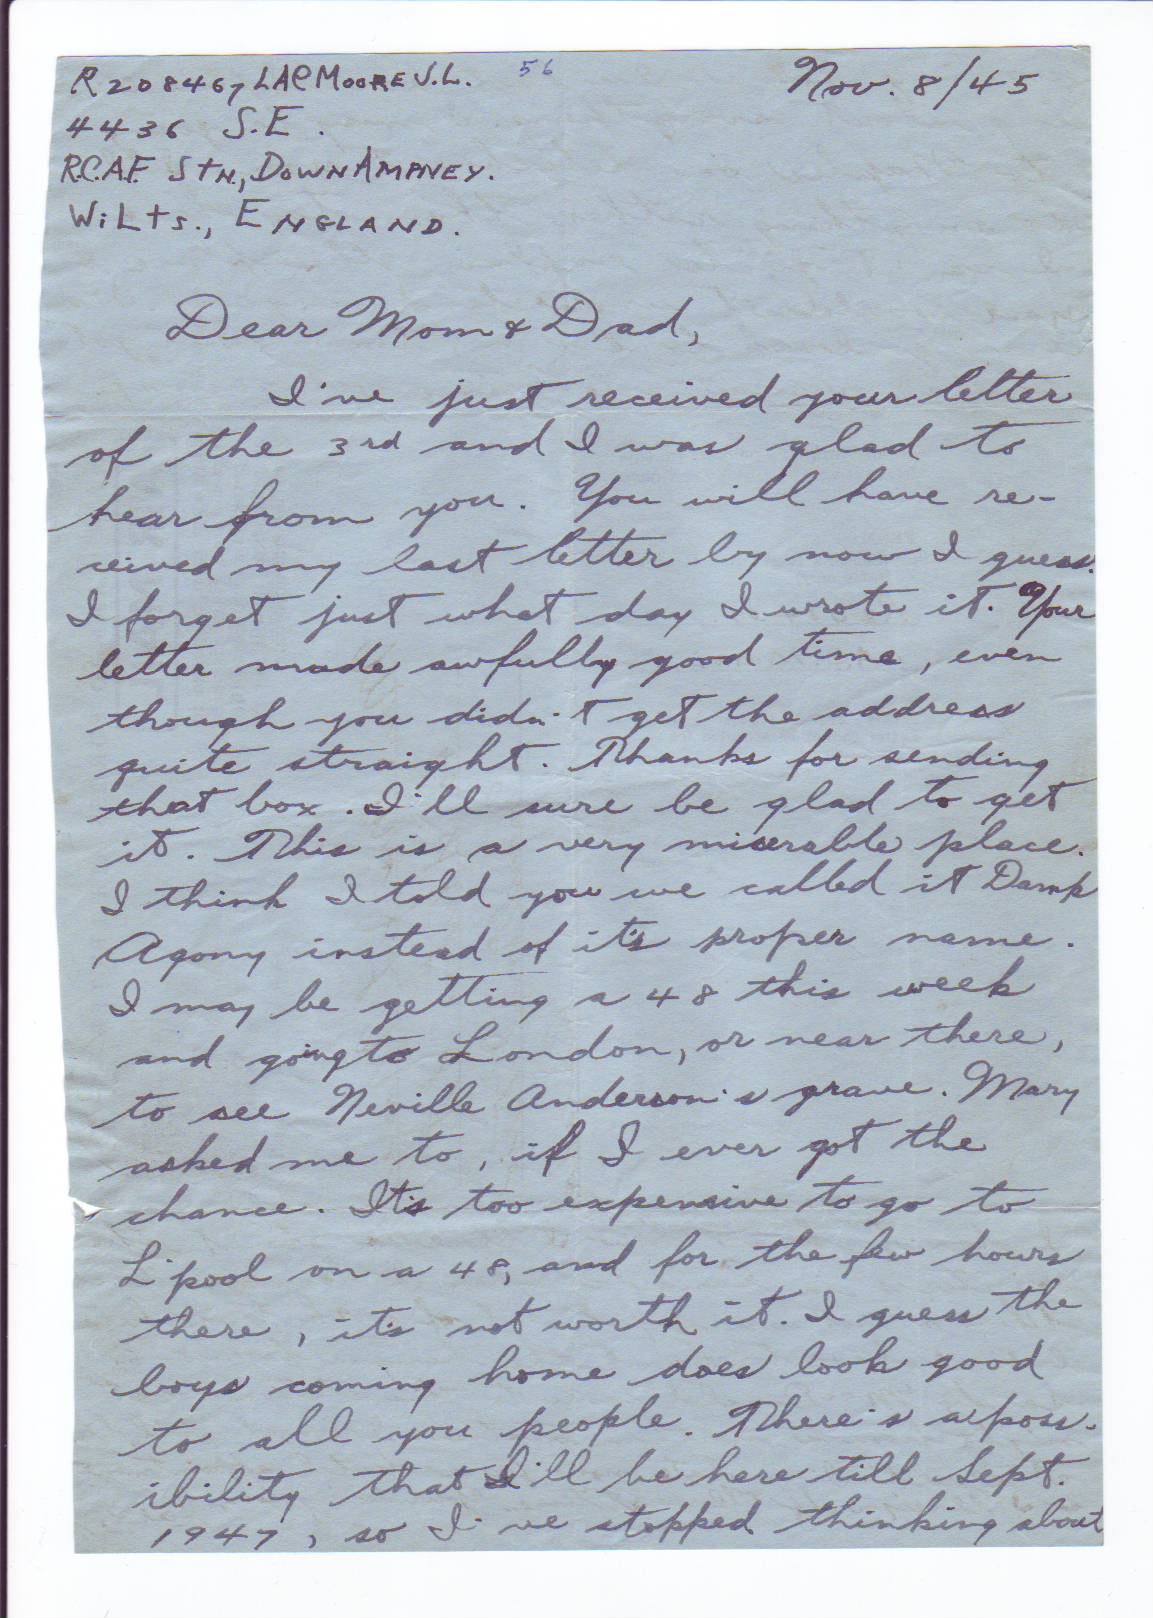 R208467 LAC MOORE J.L. 56 Nov. 8/45
4436 S.E.
R.C.A.F. STN., DOWN AMPNEY.
WILTS., ENGLAND.
Dear Mom & Dad,
I've just received your letter
of the 3rd and I was glad to
hear from you. You will have re-
ceived my last letter by now I guess.
I forget just what day I wrote it. Your
letter made awfully good time, even
though you didn't get the address
quite straight. Thanks for sending
that box. I'll sure be glad to get
it. This is a very miserable place.
I think I told you we called it Damp
Agony instead of it's proper name.
I may be getting a 48 this week
and going to London, or near there,
to see Neville Anderson's grave. Mary
asked me to, if I ever got the
chance. It's too expensive to go to
L'pool on a 48, and for the few hours
there, it's not worth it. I guess the
boys coming home does look good
to all you people. There's a poss-
ibility that I'll be here till Sept.
1947, so I've stopped thinking about